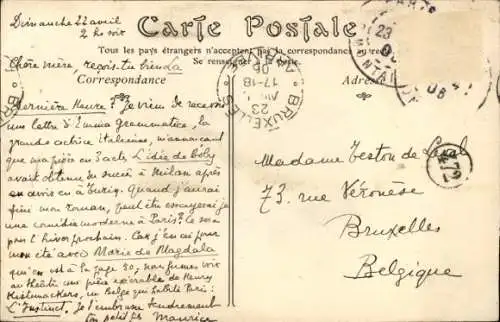 Dimanche 22 avril
2 h. soir
Carte Postale
Tous les pays étrangers n'acceptent pas la correspondance au recto
Se renseigner à la poste.
Chère mère, reçois-tu
Correspondance
Adresse
BRUXELLES
17-18
23
08
Dernière heure? Je viens de recevoir
une lettre d'Emma Grammatica, la
grande actrice italienne, m'annonçant
que ma pièce en 3 actes L'idée de Coby
avait obtenu du succès à Milan après
en avoir eu à Turin. Quand j'aurai
fini mon roman, peut être essayerai je
une comédie moderne à Paris?
pour l'hiver prochain. Car j'en ai pour
mon été avec Marie de Magdala
qui en est à la page 80,
au théâtre une pièce de Henry
Kistemaeckers, un Belge qui habite Paris:
L'Instinct. Je t'embrasse tendrement
Ton petit fils Maurice
Madame Teston de
73, rue Véronèse
Bruxelles
Belgique